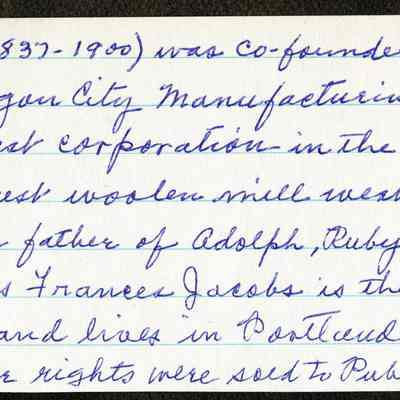 837-1900) was co-founde
gon City Manufacturin
st corporation in the
est woolen mill west
father of Adolph, Ruby
s Frances Jacobs is the
and lives in Portland
e rights were sold to Pub